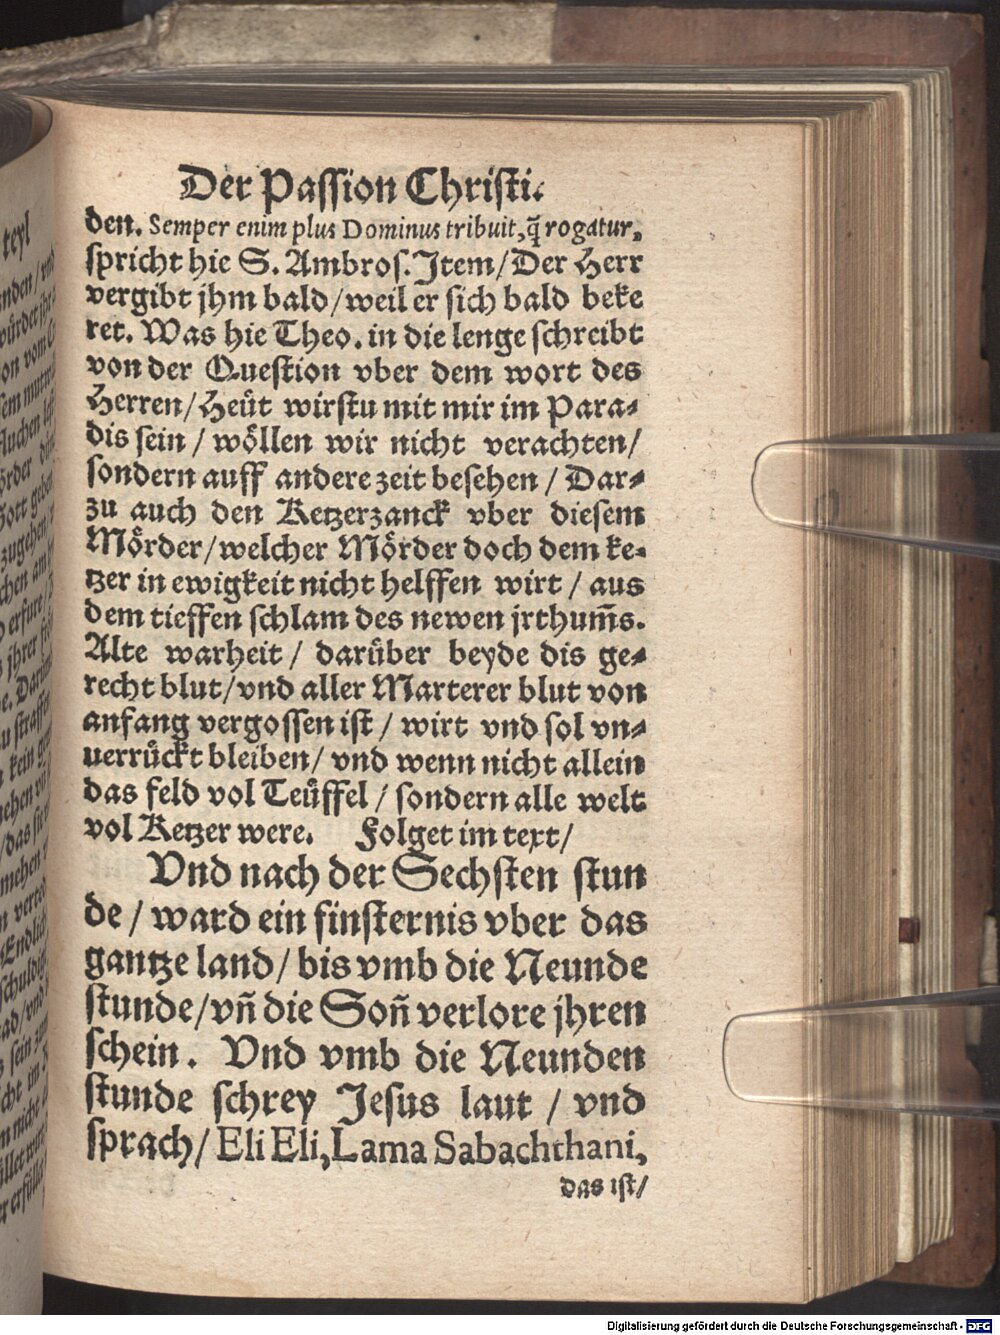 Der Passion Christi.
den. Semper enim plus Dominus tribuit, q̃ rogatur,
spricht hie S. Ambros. Item/Der Herr
vergibt jhm bald/weil er sich bald beke
ret. Was hie Theo. in die lenge schreibt
von der Question vber dem wort des
Herren/Heüt wirstu mit mir im Para⸗
dis sein / wöllen wir nicht verachten/
sondern auff andere zeit besehen / Dar⸗
zu auch den Ketzerzanck vber diesem
Mörder/welcher Mörder doch dem ke⸗
tzer in ewigkeit nicht helffen wirt / aus
dem tieffen schlam des newen jrthum̃s.
Alte warheit / darüber beyde dis ge⸗
recht blut/vnd aller Marterer blut von
anfang vergossen ist / wirt vnd sol vn⸗
uerrückt bleiben/ vnd wenn nicht allein
das feld vol Teüffel / sondern alle welt
vol Ketzer were. Folget im text/
Vnd nach der Sechsten stun
de / ward ein finsternis vber das
gantze land/ bis vmb die Neunde
stunde/vñ die Soñ verlore jhren
schein. Vnd vmb die Neunden
stunde schrey Jesus laut / vnd
sprach/ Eli Eli, Lama Sabachthani,
das ist/
Digitalisierung gefördert durch die Deutsche Forschungsgemeinschaft - DFG